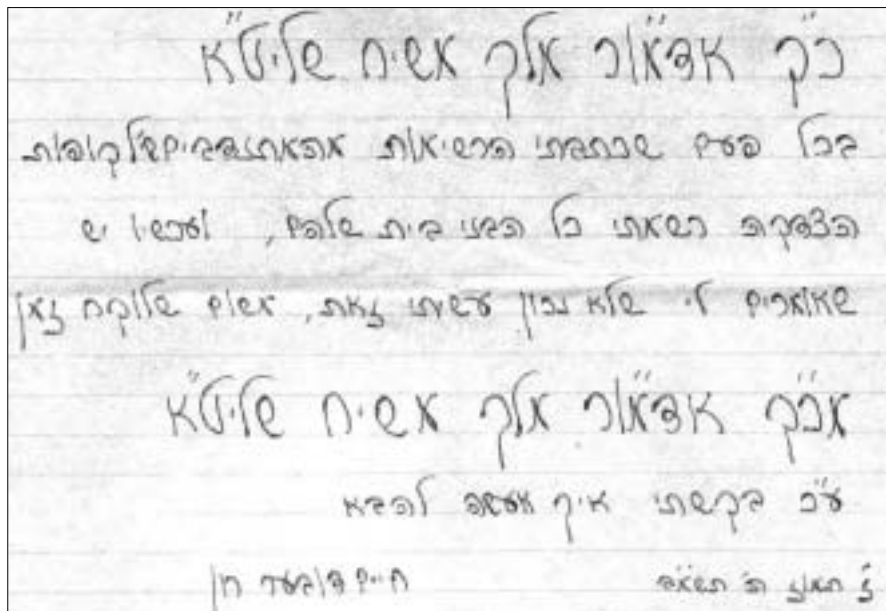 כ"ק אדמ"ור מלך משיח שליט"א
בכל פעם שכתבתי הרשימות מהמתנדבים של קופות
הצדקה רשמתי כל הבני בית שלהם, ועכשיו יש
שאומרים לי שלא נכון עשיתי זאת, משום שלוקח זמן
מכ"ק אדמ"ור מלך משיח שליט"א
ע"כ בקשתי איך אעשה להבא
ז' תמוז ה' חיים דובער חן